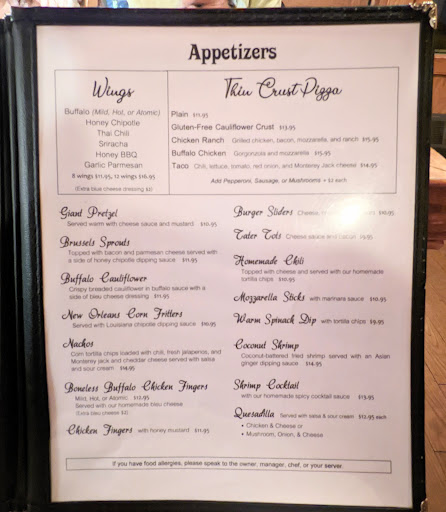 Appetizers
Wings
Buffalo (Mild, Hot, or Atomic)
Honey Chipotle
Thai Chili
Sriracha
Honey BBQ
Garlic Parmesan
8 wings $11.95, 12 wings $16.95
(Extra bleu cheese dressing $1)
Thin Crust Pizza
Plain $11.95
Gluten-Free Cauliflower Crust $13.95
Chicken Ranch Grilled chicken, bacon, mozzarella, and ranch $15.95
Buffalo Chicken Gorgonzola and mozzarella $15.95
Taco Chili, lettuce, tomato, red onion, and Monterey Jack cheese $14.95
Add Pepperoni, Sausage, or Mushrooms + $2 each
Giant Pretzel
Served warm with cheese sauce and mustard $10.95
Brussels Sprouts
Topped with bacon and parmesan cheese served with
a side of honey chipotle dipping sauce $11.95
Buffalo Cauliflower
Crispy breaded cauliflower in buffalo sauce with a
side of bleu cheese dressing $11.95
New Orleans Corn Fritters
Served with Louisiana chipotle dipping sauce $10.95
Nachos
Corn tortilla chips loaded with chili, fresh jalapenos, and
Monterey jack and cheddar cheese served with salsa
and sour cream $14.95
Boneless Buffalo Chicken Fingers
Mild, Hot, or Atomic $12.95
Served with our homemade bleu cheese
(Extra bleu cheese $1)
Chicken Fingers with honey mustard $11.95
Burger Sliders Cheese, $10.95
Tater Tots Cheese sauce and bacon
Homemade Chili
Topped with cheese and served with our homemade
tortilla chips $10.95
Mozzarella Sticks with marinara sauce $10.95
Warm Spinach Dip with tortilla chips $9.95
Coconut Shrimp
Coconut-battered fried shrimp served with an Asian
ginger dipping sauce $14.95
Shrimp Cocktail
with our homemade spicy cocktail sauce $13.95
Quesadilla Served with salsa & sour cream $12.95 each
• Chicken & Cheese or
• Mushroom, Onion, & Cheese
If you have food allergies, please speak to the owner, manager, chef, or your server.